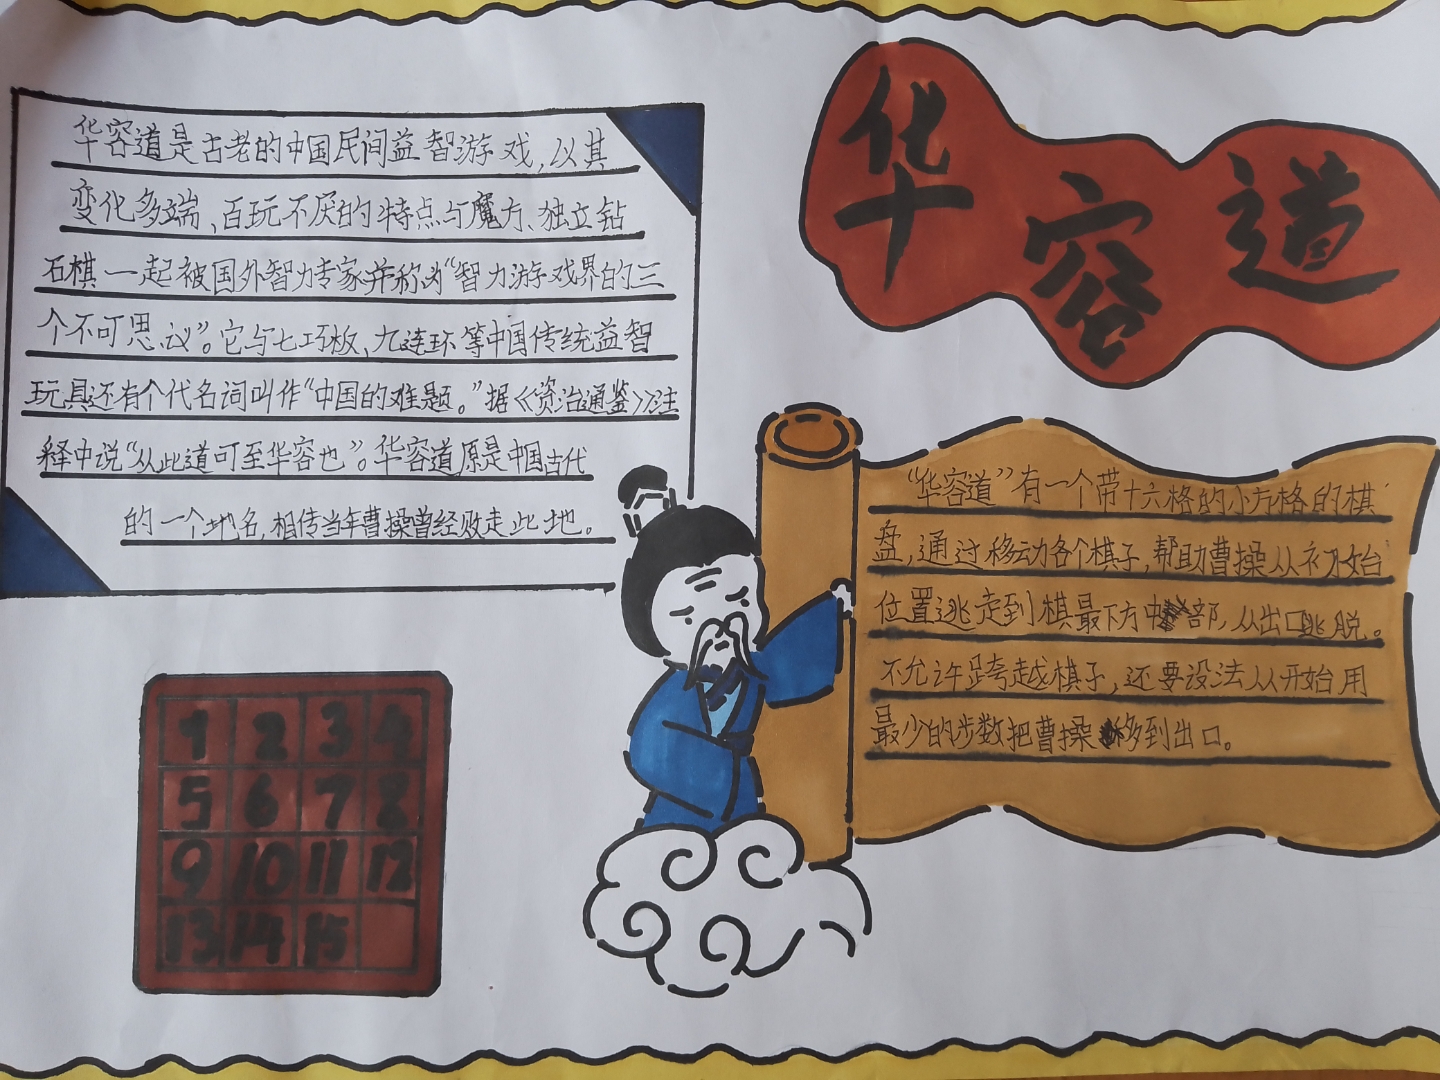 华容道
华容道是古老的中国民间益智游戏,以其
变化多端、百玩不厌的特点与魔方、独立钻
石棋一起被国外智力专家并称为“智力游戏界的三
个不可思议”。它与七巧板、九连环等中国传统益智
玩具还有个代名词叫作“中国的难题。”据《资治通鉴》注
释中说“从此道可至华容也”。华容道原是中国古代
的一个地名,相传当年曹操曾经败走此地。
“华容道”有一个带十六格的小方格的棋
盘,通过移动各个棋子,帮助曹操从初始
位置逃走到棋最下方中部,从出口逃脱。
不允许跨越棋子,还要设法从开始用
最少的步数把曹操移到出口。
1 2 3 4
5 6 7 8
9 10 11 12
13 14 15